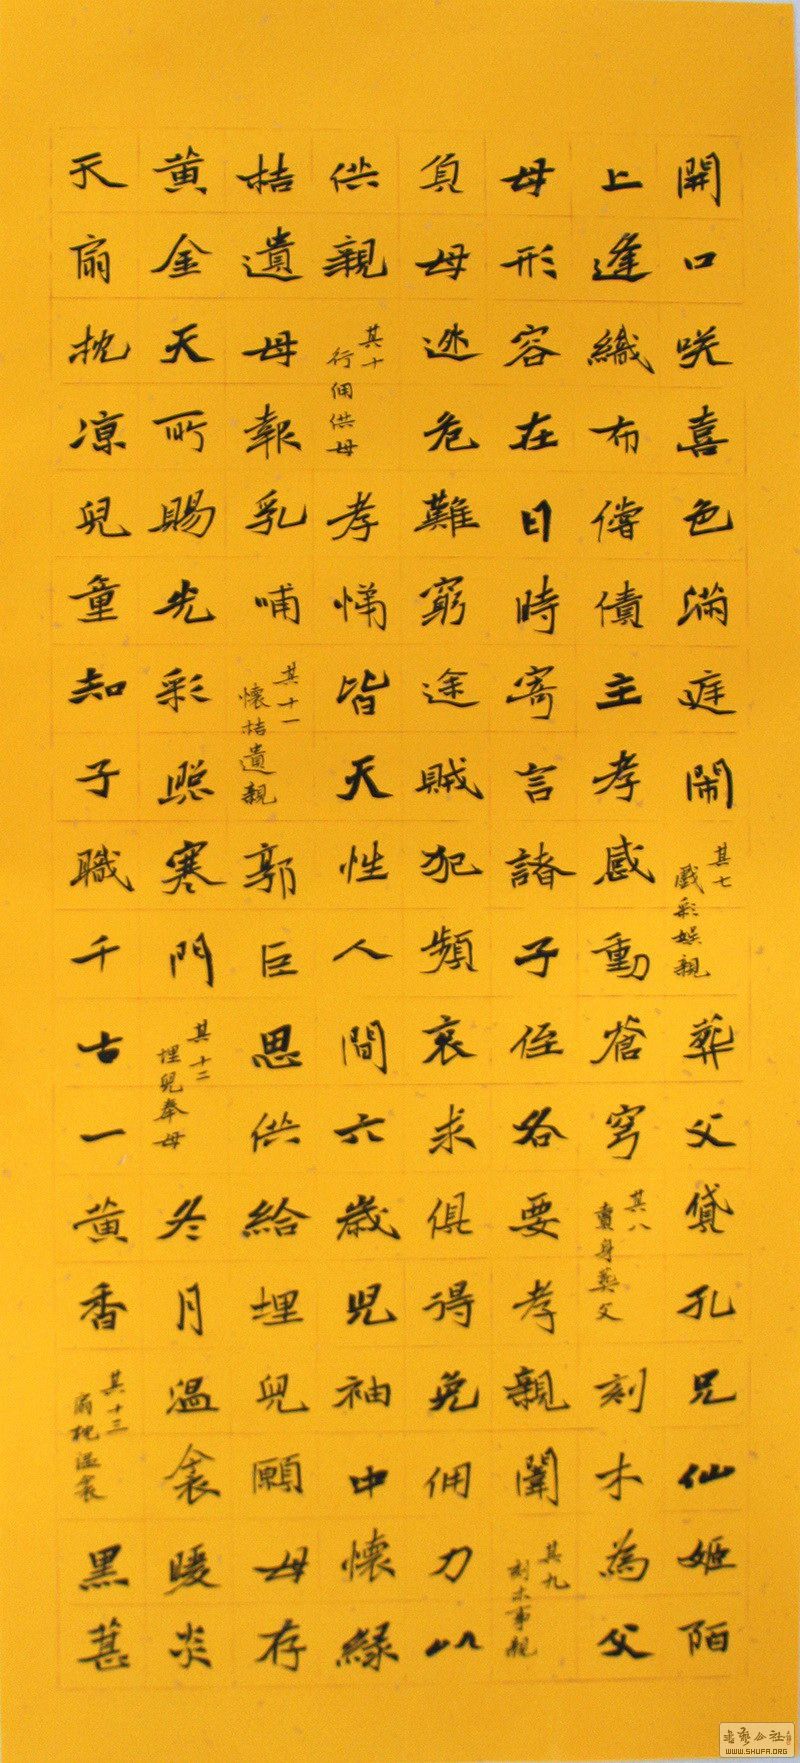 開口咲喜色滿庭鬧
其七
戲彩娛親
葬父貸孔兄仙姬陌
上逢織布償債主孝感動蒼穹
其八
賣身葬父
刻木為父
母形容在日時寄言諸子侄各要孝親聞
其九
刻木事親
負母逃危難窮途賊犯頻哀求俱得免佣力以
供親
其十
行佣供母
孝悌皆天性人間六歲兒袖中懷綠
桔遺母報乳哺
其十一
懷桔遺親
郭巨思供給埋兒願母存
黃金天所賜光彩照寒門
其十二
埋兒奉母
冬月溫衾暖炎
天扇枕涼兒童知子職千古一黃香
其十三
扇枕溫衾
黑葚
WWW.SHUFA.ORG